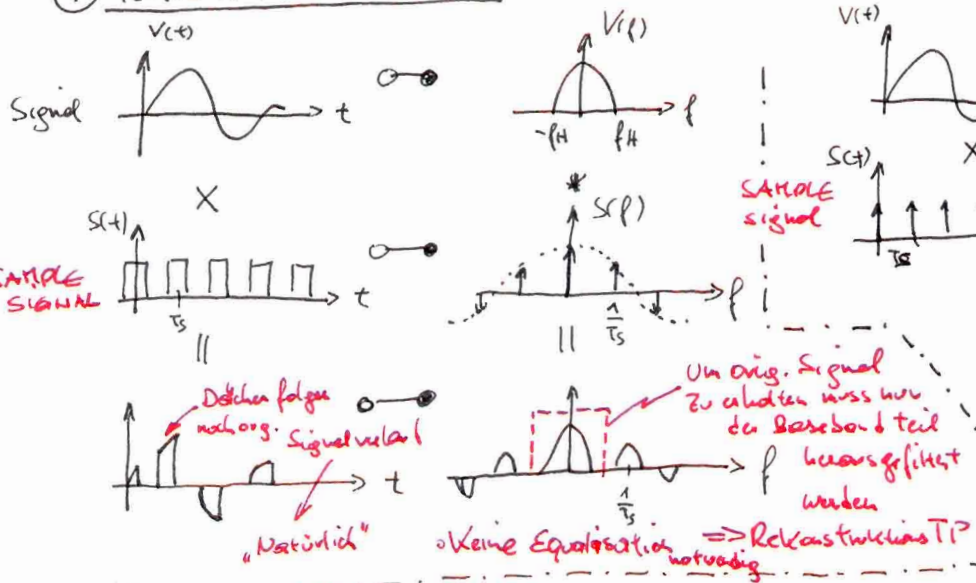 V(t)
V(f)
V(t)
Signal
t
-fH
fH
f
X
*
X
S(t)
S(f)
SAMPLE
signal
S(t)
SAMPLE
SIGNAL
Ts
t
1/Ts
f
Ts
||
||
Dächer folgen
noch org. Signalverlauf
t
„Natürlich"
Um orig. Signal
zu erhalten muss nur
der Baseband teil
herausgefiltert
werden
f
1/Ts
Keine Equalisation notwendig => Rekonstruktions TP